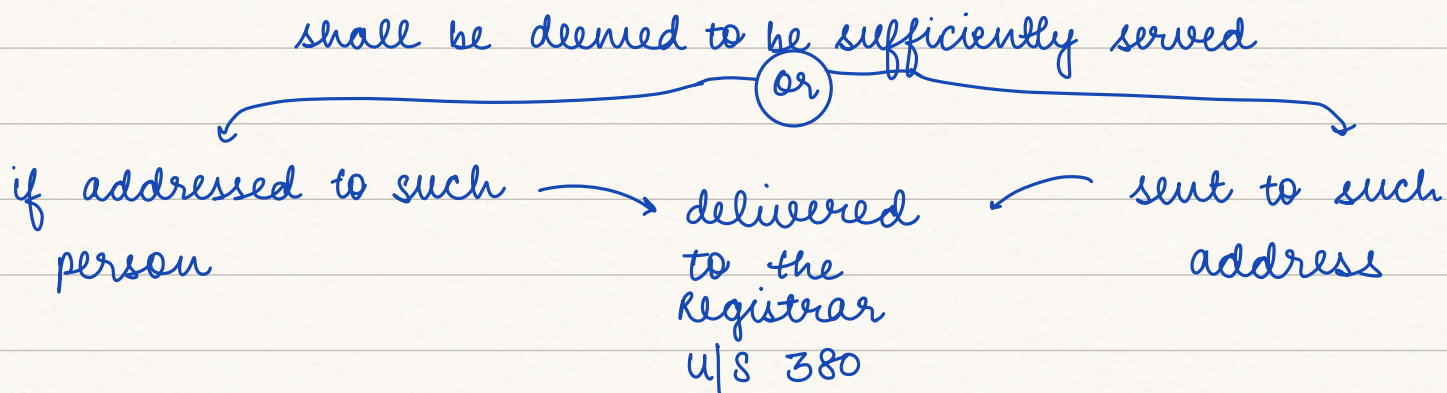 shall be deemed to be sufficiently served
or
if addressed to such
person
delivered
to the
Registrar
U/S 380
sent to such
address